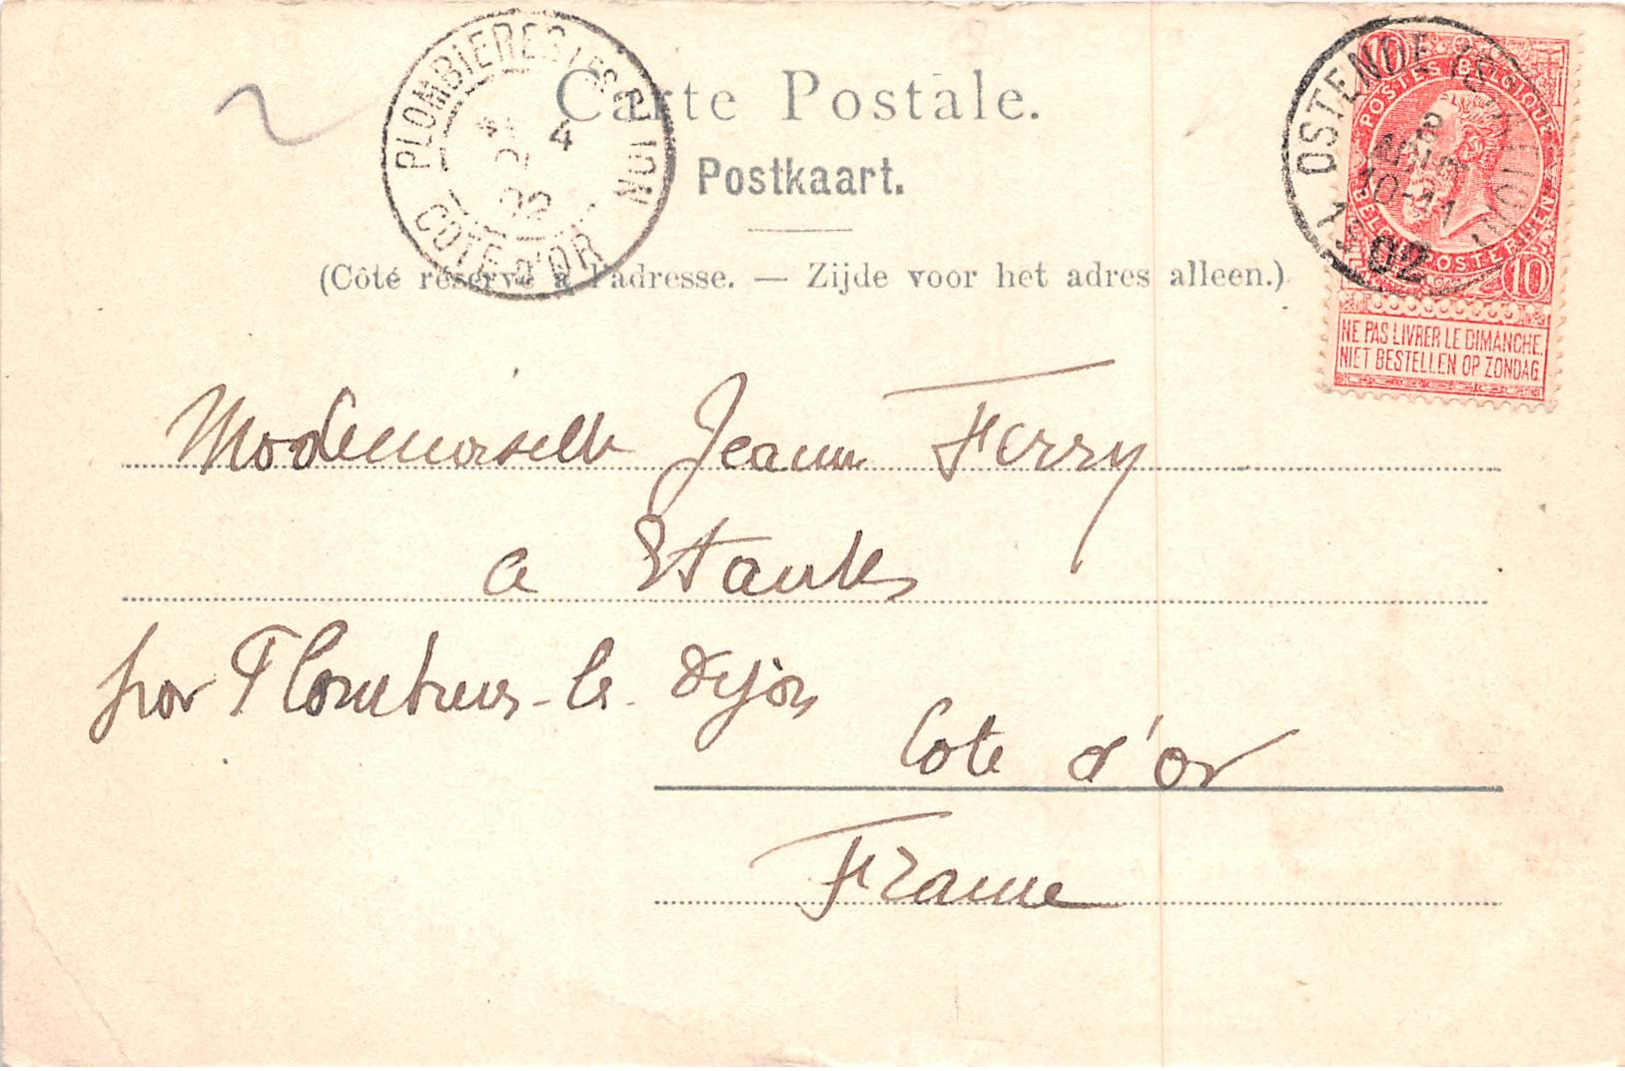 Carte Postale.
Postkaart.
(Côté réservé à l'adresse. — Zijde voor het adres alleen.)
PLOMBIERES LES DIJON
4
02
COTE D'OR
OSTENDE
10-11
02
10
POSTES BELGIQUE
BELGIE POSTERIJEN
10
NE PAS LIVRER LE DIMANCHE.
NIET BESTELLEN OP ZONDAG
Mademoiselle Jeanne Ferry
a
par Plombieres-les-Dijon
Cote d'or
France